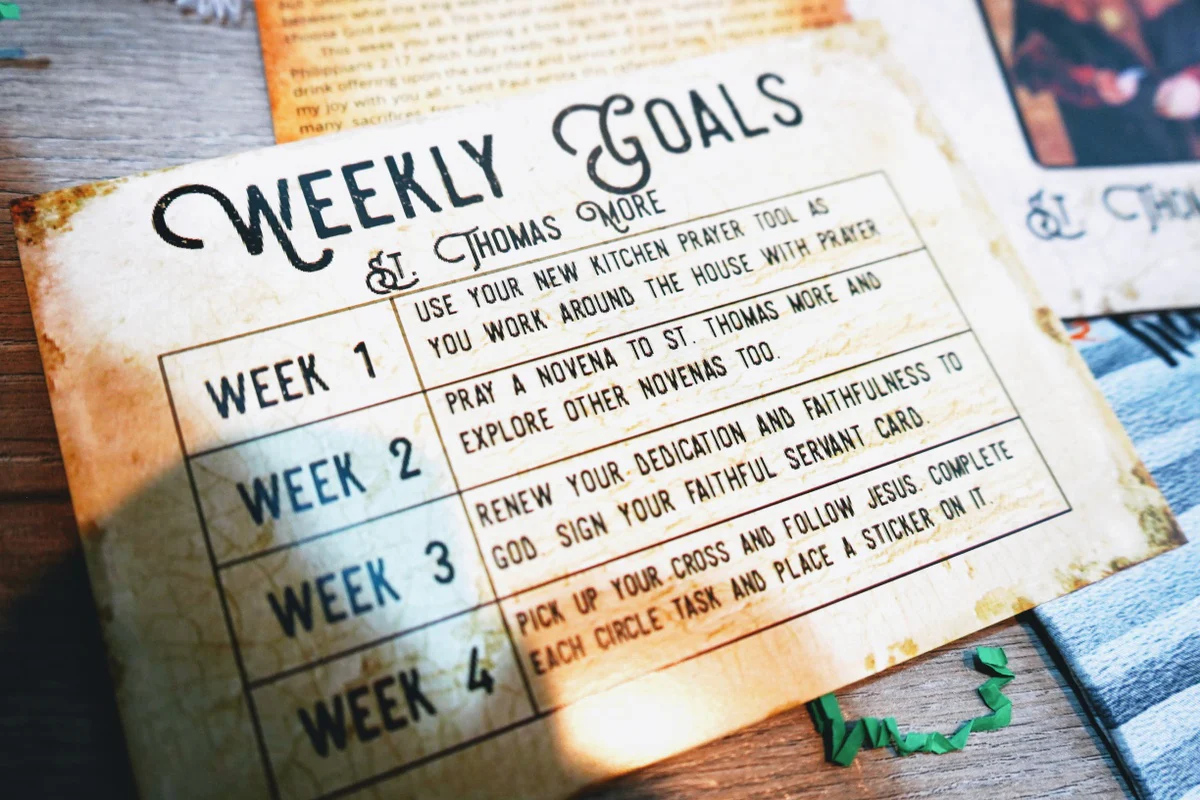 This week you are getting a
Philippians 2:17 which fully
drink offering upon the sacrifice and
my joy with you all." Saint Paul wrote this
many sacrifices
WEEKLY GOALS
ST. THOMAS MORE
WEEK 1
USE YOUR NEW KITCHEN PRAYER TOOL AS
YOU WORK AROUND THE HOUSE WITH PRAYER
WEEK 2
PRAY A NOVENA TO ST. THOMAS MORE AND
EXPLORE OTHER NOVENAS TOO.
WEEK 3
RENEW YOUR DEDICATION AND FAITHFULNESS TO
GOD. SIGN YOUR FAITHFUL SERVANT CARD.
WEEK 4
PICK UP YOUR CROSS AND FOLLOW JESUS. COMPLETE
EACH CIRCLE TASK AND PLACE A STICKER ON IT.
ST. THO